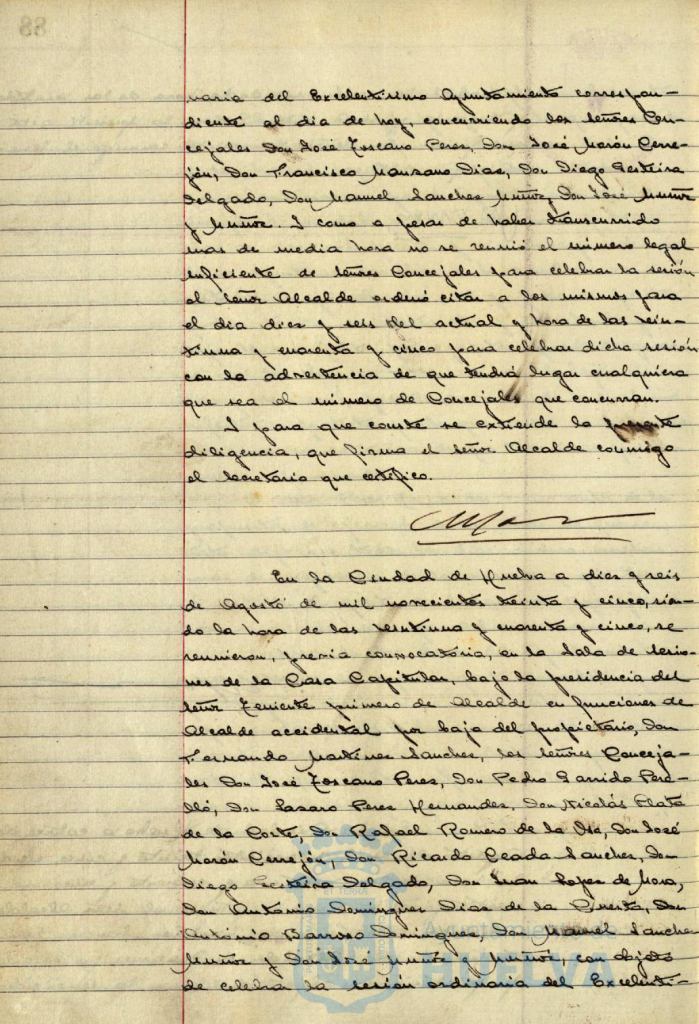 88
naria del Excelentisimo Ayuntamiento correspon-
diente al dia de hoy, concurriendo los señores Con-
cejales Don José Toscano Perez, Don José Morón Cerre-
jón, Don Francisco Manzano Diaz, Don Diego Gesteira
Delgado, Don Manuel Sanchez Muñoz, Don José Muñoz
y Muñoz. I como a pesar de haber transcurrido
mas de media hora no se reunió el número legal
suficiente de señores Concejales para celebrar la sesión
el señor Alcalde ordenó citar a los mismos para
el dia diez y seis del actual y hora de las vein-
tiuna y cuarenta y cinco para celebrar dicha sesión
con la advertencia de que tendrá lugar cualquiera
que sea el número de Concejales que concurran.
I para que conste se extiende la presente
diligencia, que firma el señor Alcalde conmigo
el Secretario que certifico.
En la Ciudad de Huelva a diez y seis
de Agosto de mil novecientos treinta y cinco, sien-
do la hora de las veintiuna y cuarenta y cinco, se
reunieron, previa convocatoria, en la Sala de Sesio-
nes de la Casa Capitular, bajo la presidencia del
señor Teniente primero de Alcalde en funciones de
Alcalde accidental por baja del propietario, Don
Fernando Martinez Sanchez, los señores Conceja-
les Don José Toscano Perez, Don Pedro Garrido Pere-
lló, Don Lazaro Perez Hernandez, Don Nicolás Plata
de la Corte, Don Rafael Romero de la Osa, Don José
Morón Cerrejón, Don Ricardo Ceada Sanchez, Don
Diego Gesteira Delgado, Don Juan Lopez de Mora,
Don Antonio Dominguez Diaz de la Cuesta, Don
António Barroso Dominguez, Don Manuel Sanchez
Muñoz y Don José Muñoz y Muñoz, con objeto
de celebrar la sesión ordinaria del Excelenti-
Ayuntamiento
HUELVA